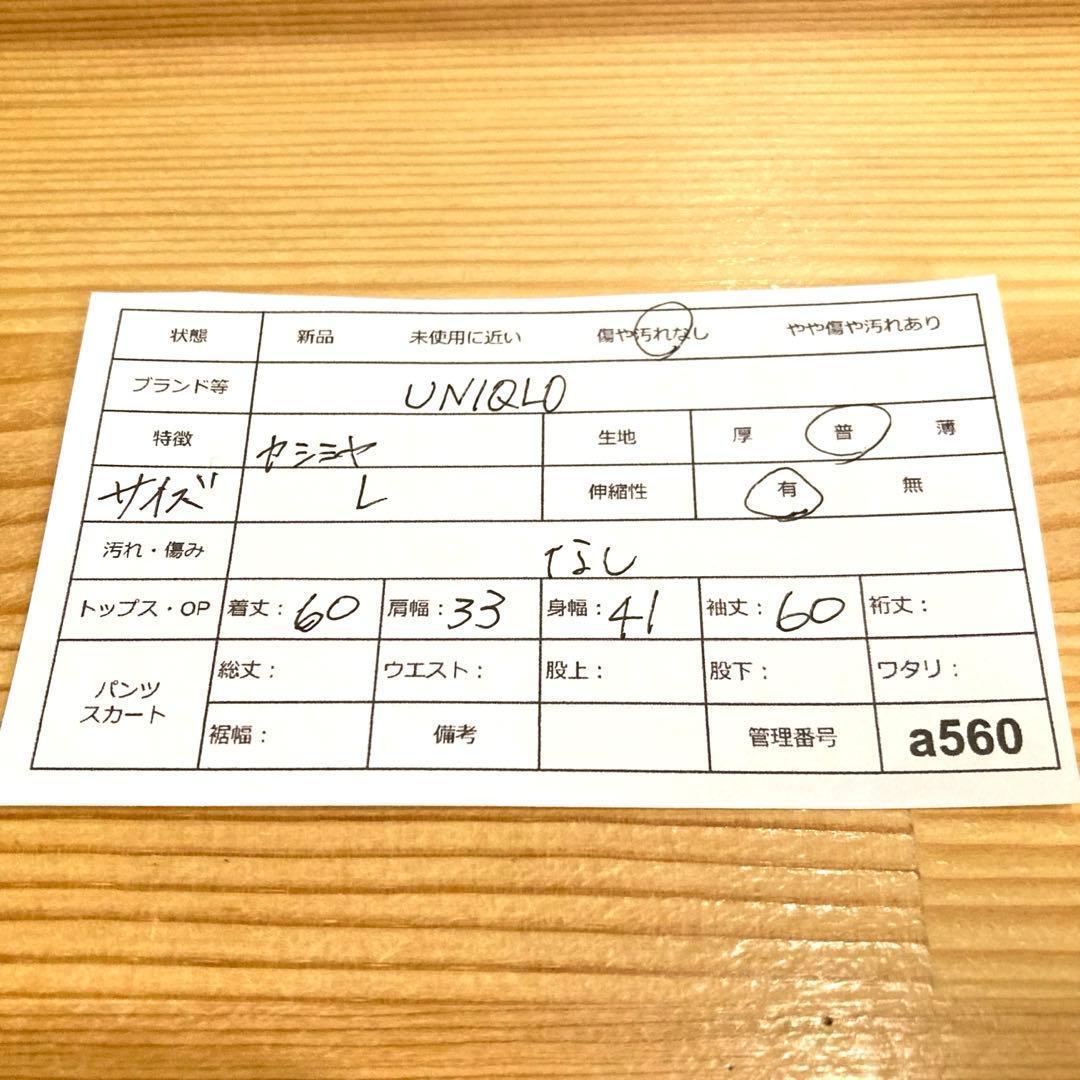 状態 新品 未使用に近い 傷や汚れなし やや傷や汚れあり
ブランド等 UNIQLO
特徴 カシミヤ 生地 厚 普 薄
サイズ L 伸縮性 有 無
汚れ・傷み なし
トップス・OP 着丈：60 肩幅：33 身幅：41 袖丈：60 裄丈：
パンツ スカート 総丈： ウエスト： 股上： 股下： ワタリ：
裾幅： 備考 管理番号 a560